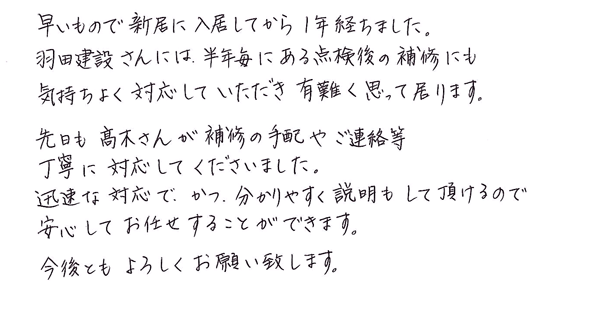 早いもので新居に入居してから1年経ちました。
羽田建設さんには、半年毎にある点検後の補修にも
気持ちよく対応していただき有難く思って居ります。
先日も髙木さんが補修の手配やご連絡等
丁寧に対応してくださいました。
迅速な対応で、かつ、分かりやすく説明もして頂けるので
安心してお任せすることができます。
今後ともよろしくお願い致します。